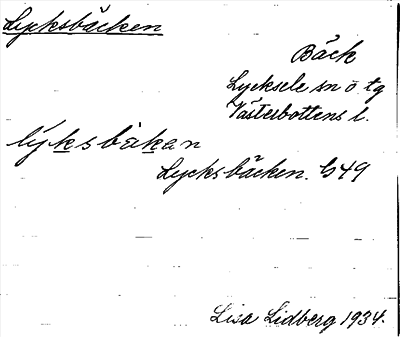 Lycksbäcken
Bäck
Lycksele sn o tg
Västerbottens l.
lýksbäkan
Lycksbäcken. G49
Lisa Lidberg 1934.